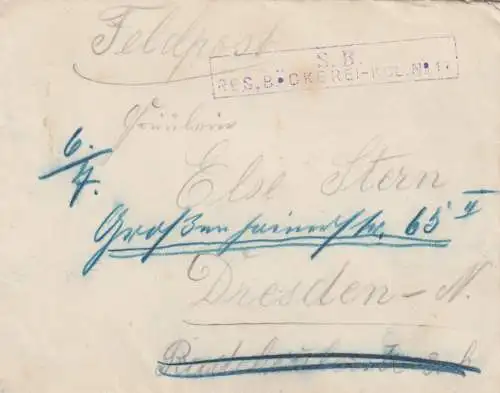 Feldpost
S. B.
RES. BÄCKEREI-KOL. No 17
Fräulein
6./7.
Else Stern
Großenhainerstr. 65 II
Dresden-N.